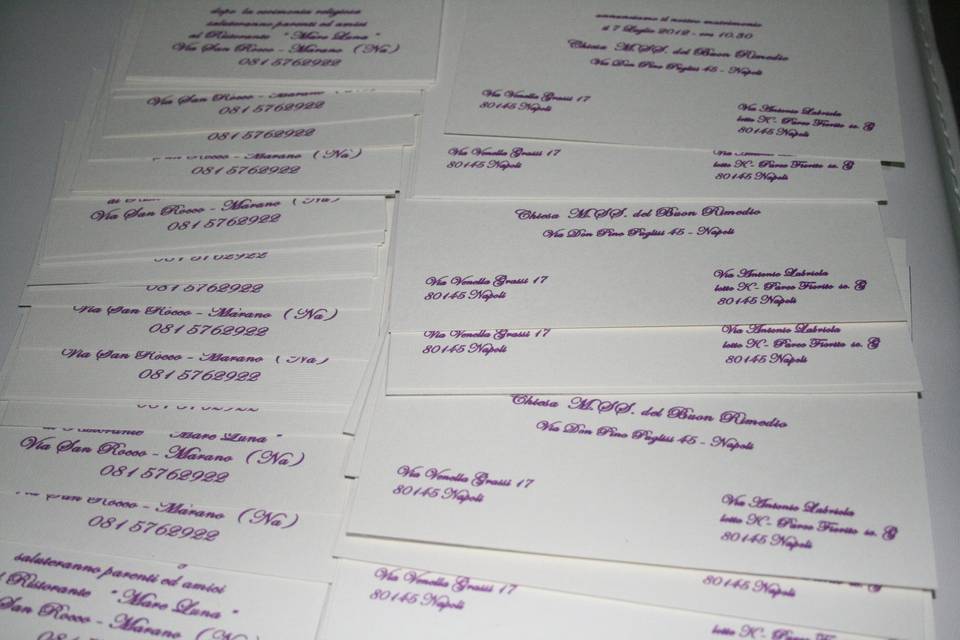 dopo la cerimonia religiosa
saluteranno parenti ed amici
al Ristorante " Mare Luna "
Via San Rocco - Marano (Na)
081 5762922
Via San Rocco - Marano (Na)
081 5762922
081 5762922
San Rocco - Marano (Na)
081 5762922
Via San Rocco - Marano (Na)
081 5762922
081 5762922
081 5762922
Via San Rocco - Marano (Na)
081 5762922
Via San Rocco - Marano (Na)
081 5762922
081 5762922
Ristorante " Mare Luna "
Via San Rocco - Marano (Na)
081 5762922
San Rocco - Marano (Na)
081 5762922
saluteranno parenti ed amici
Ristorante " Mare Luna "
San Rocco - Marano (Na)
annunciamo il nostro matrimonio
il 7 Luglio 2012 - ore 10.30
Chiesa M.SS. del Buon Rimedio
Via Don Pino Puglisi 45 - Napoli
Via Venella Grassi 17
80145 Napoli
Via Antonio Labriola
lotto K- Parco Fiorito sc. G
80145 Napoli
Via Venella Grassi 17
80145 Napoli
Via Antonio
lotto K- Parco Fiorito sc. G
80145 Napoli
Chiesa M.SS. del Buon Rimedio
Via Don Pino Puglisi 45 - Napoli
Via Venella Grassi 17
80145 Napoli
Via Antonio Labriola
lotto K- Parco Fiorito sc. G
80145 Napoli
Via Venella Grassi 17
80145 Napoli
Via Antonio Labriola
lotto K- Parco Fiorito sc. G
80145 Napoli
Chiesa M.SS. del Buon Rimedio
Via Don Pino Puglisi 45 - Napoli
Via Venella Grassi 17
80145 Napoli
Via Antonio Labriola
lotto K- Parco Fiorito sc. G
80145 Napoli
Via Venella Grassi 17
80145 Napoli
80145 Napoli
lotto K- Parco Fiorito sc. G